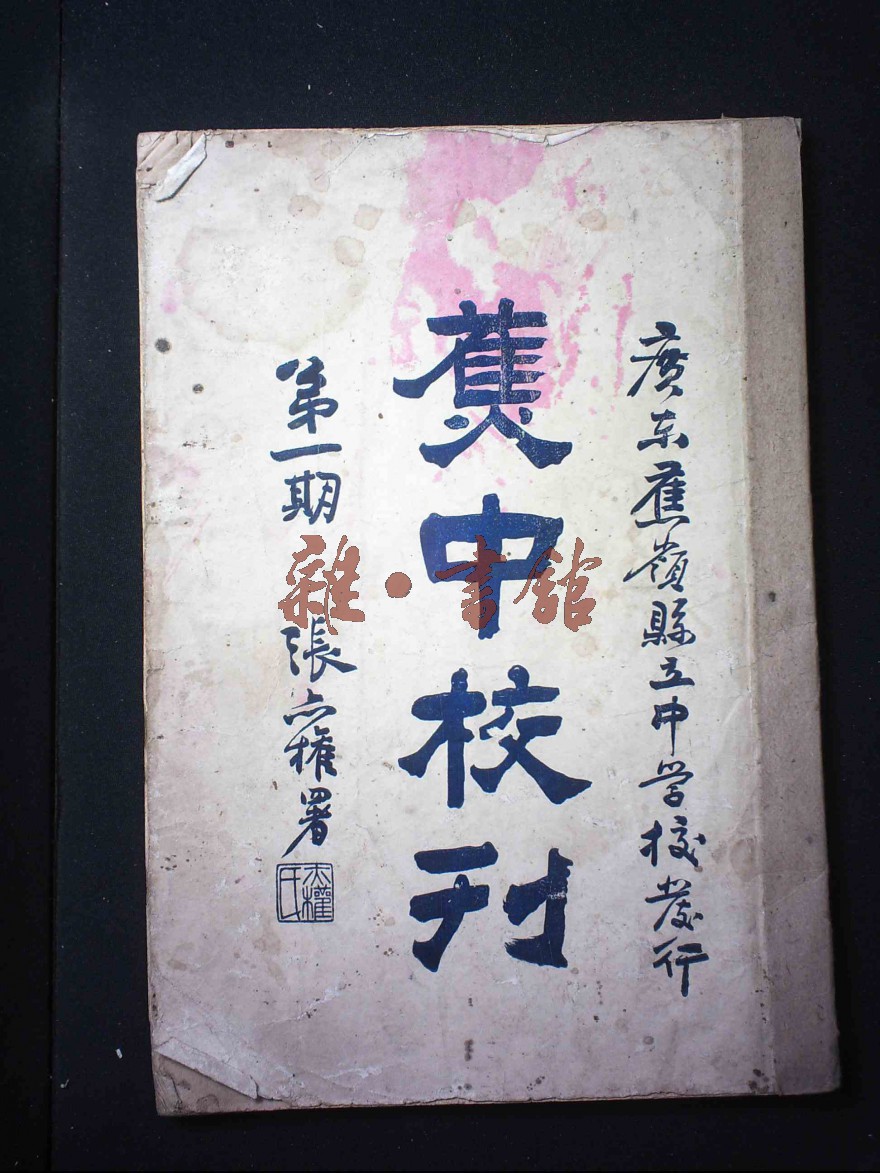 廣东蕉嶺縣立中学校發行
蕉中校刊
第一期
張六權署
六權氏
雜·書館